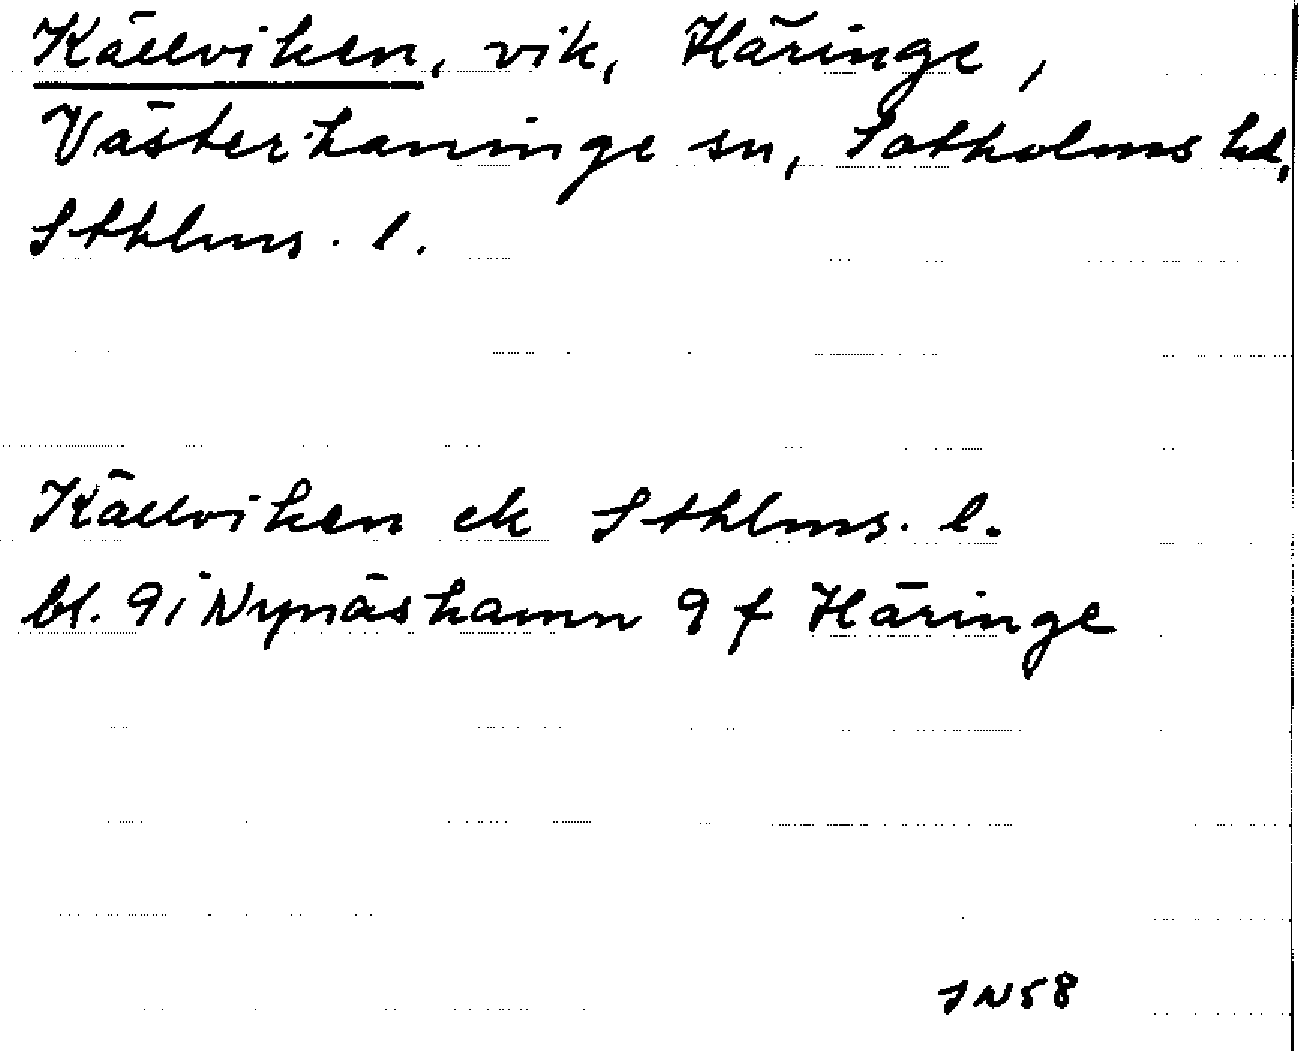 Källviken, vik, Häringe,
Västerhaninge sn, Sotholms hd,
Sthlms. l.
Källviken ek Sthlms. l.
bl. 9i Nynäshamn 9 f Häringe
JN58